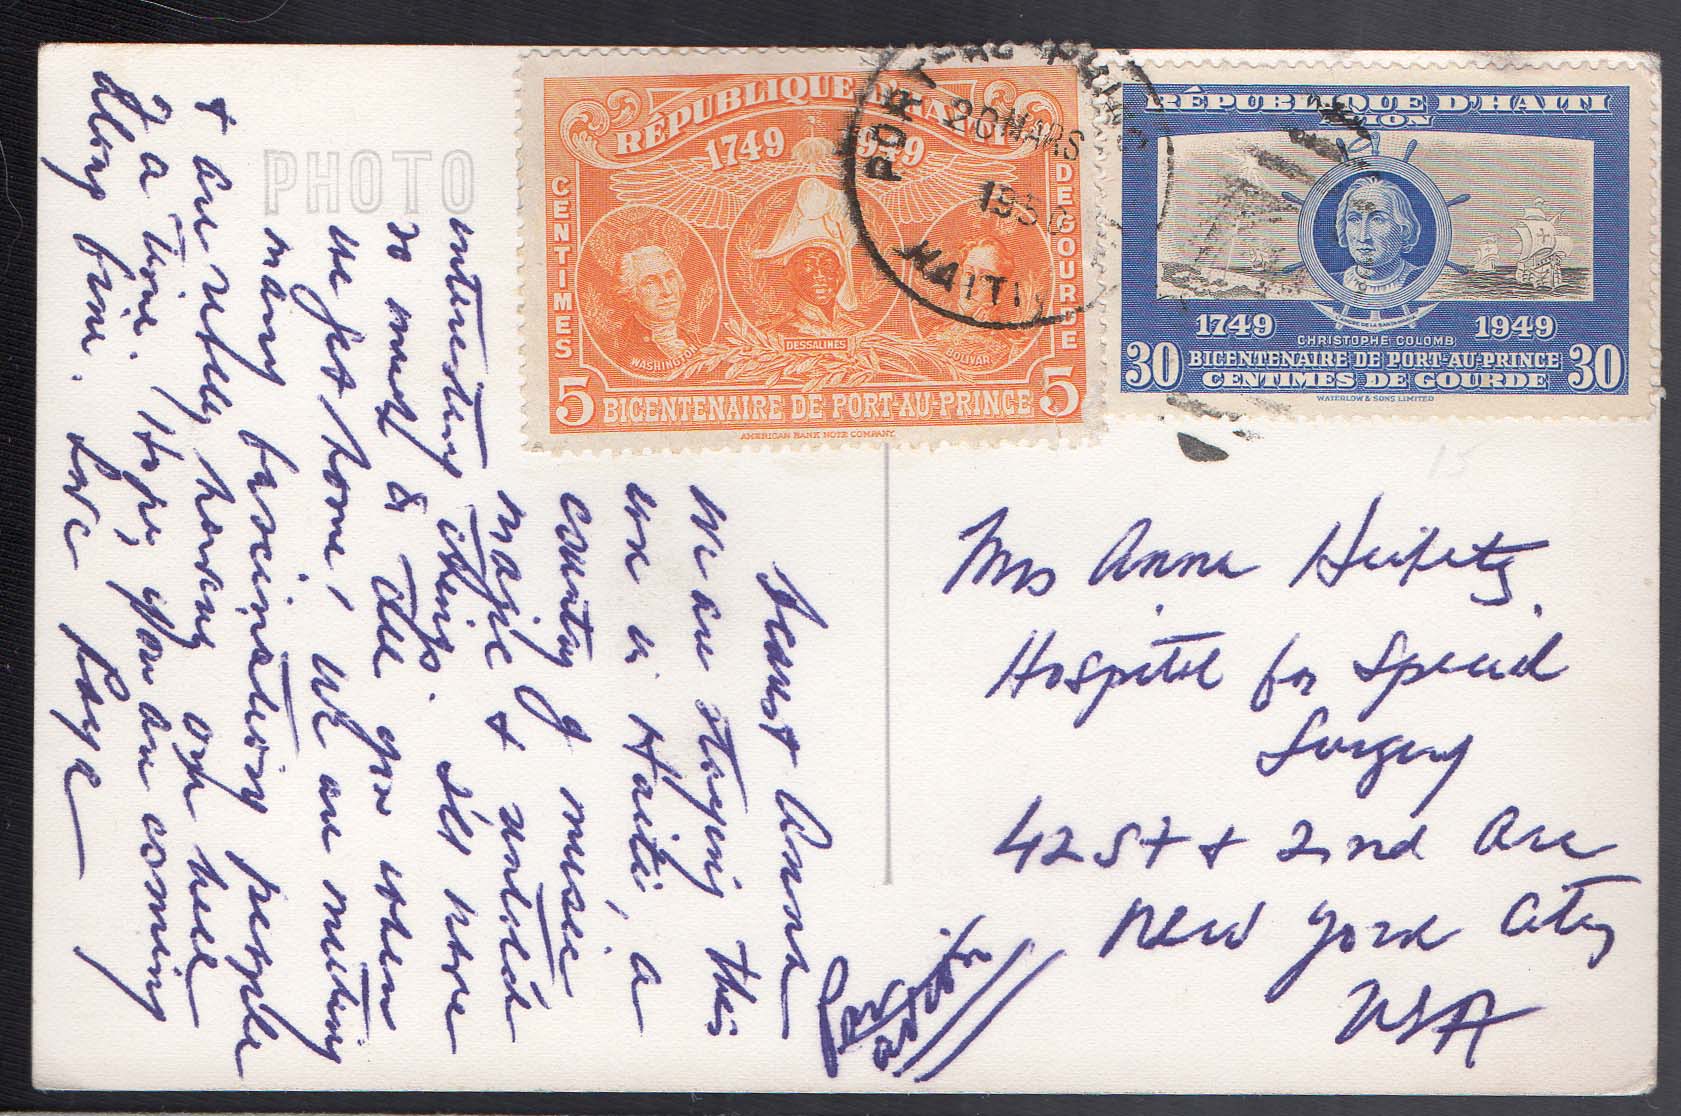 PHOTO
RÉPUBLIQUE D'HAITI
1749 1949
CENTIMES
DE GOURDE
WASHINGTON
DESSALINES
BOLIVAR
5 BICENTENAIRE DE PORT-AU-PRINCE 5
AMERICAN BANK NOTE COMPANY.
PORT-AU-PRINCE
20 MARS
HAITI
RÉPUBLIQUE D'HAITI
1749 1949
CHRISTOPHE COLOMB
30 BICENTENAIRE DE PORT-AU-PRINCE 30
CENTIMES DE GOURDE
WATERLOW & SONS LIMITED
15
Dearest Anna
We are staying this
one in Haiti, a
country of music
magic & untold
interesting things. Its more
so much to tell you when
we get home, we are meeting
many fascinating people
& are utterly having
a time. Hope you are coming
along fine. Love
Mrs Anna Heifetz.
Hospital for Special
Surgery
42 St + 2nd Ave
New York City
USA